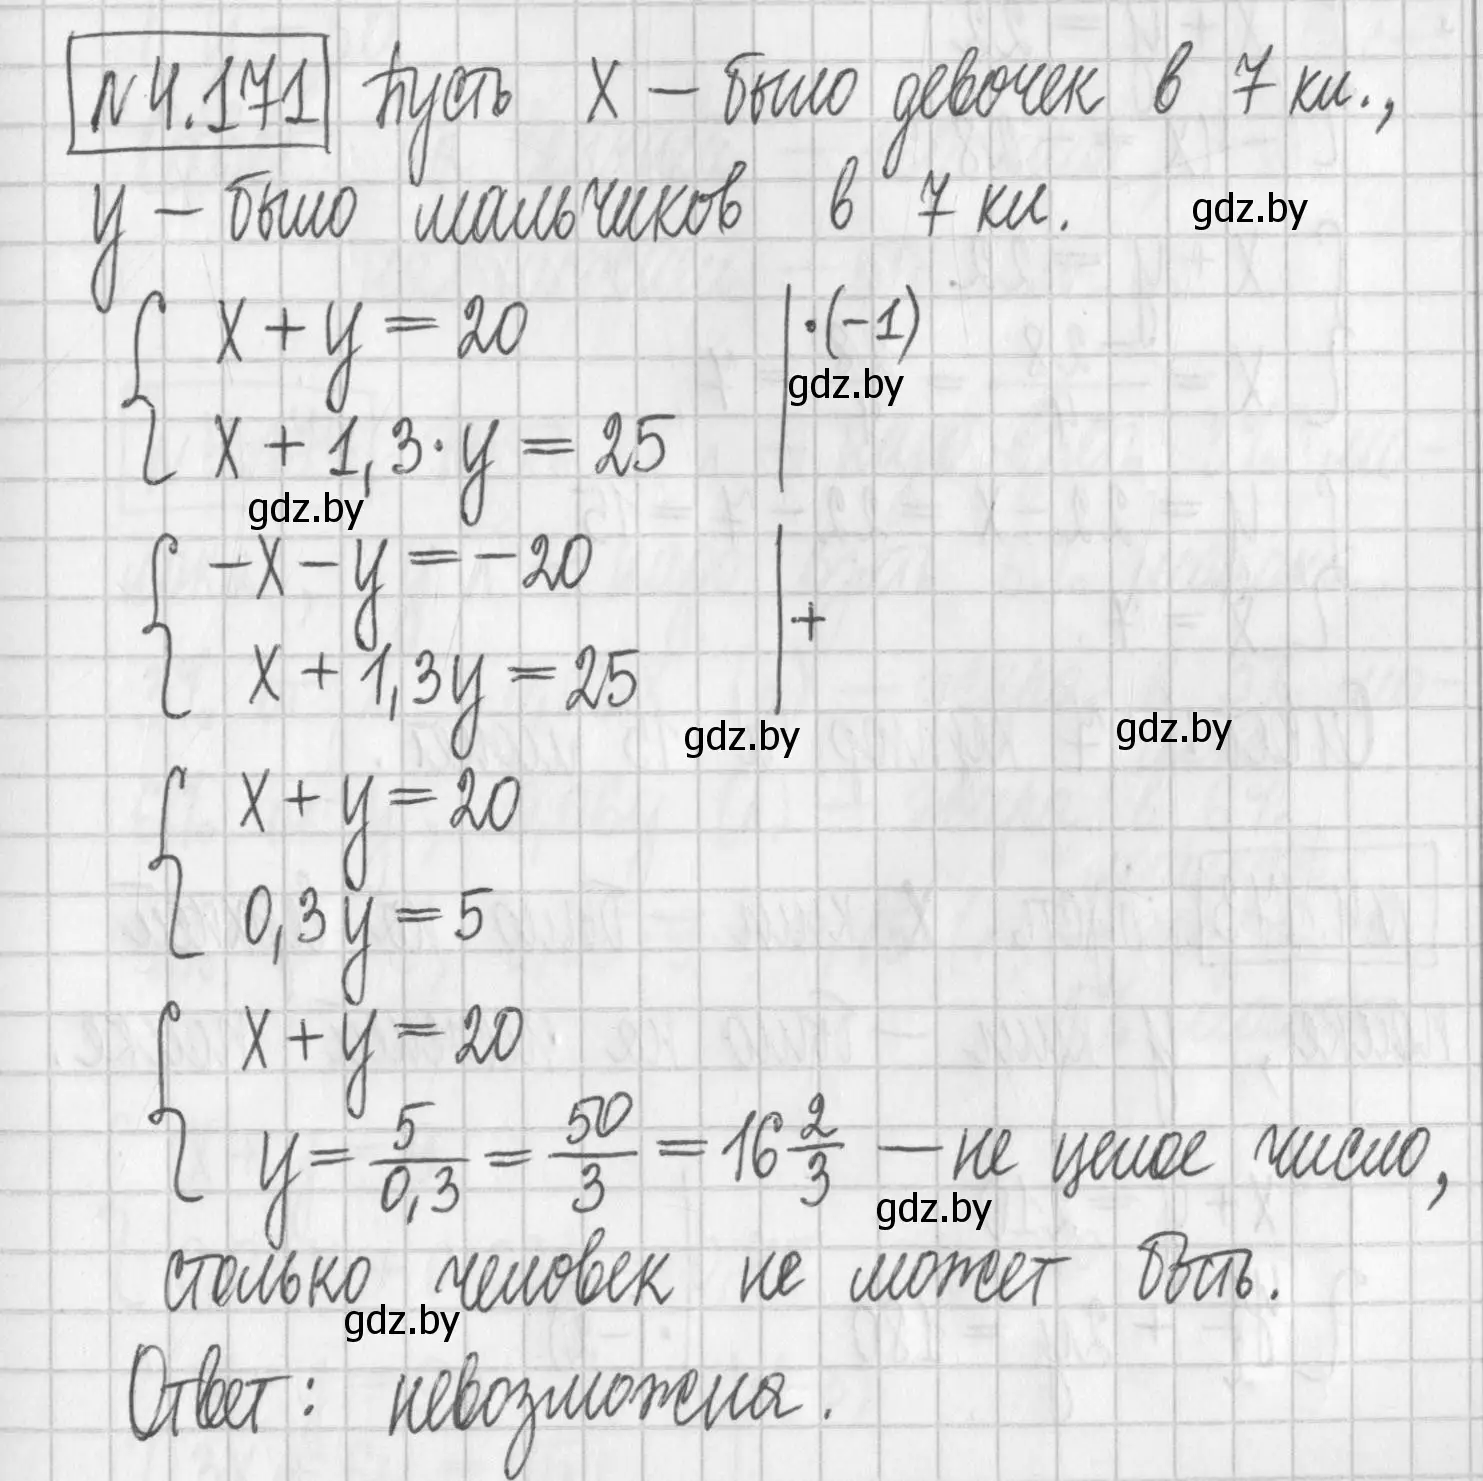 №4.171 Пусть x – было девочек в 7 кл.,
y – было мальчиков в 7 кл.
gdz.by
x + y = 20 | ·(-1)
gdz.by
x + 1,3·y = 25
gdz.by
-x - y = -20
+
x + 1,3y = 25
gdz.by gdz.by
x + y = 20
0,3y = 5
x + y = 20
y = 5/0,3 = 50/3 = 16 2/3 — не целое число,
gdz.by
столько человек не может быть.
gdz.by
Ответ: невозможна.